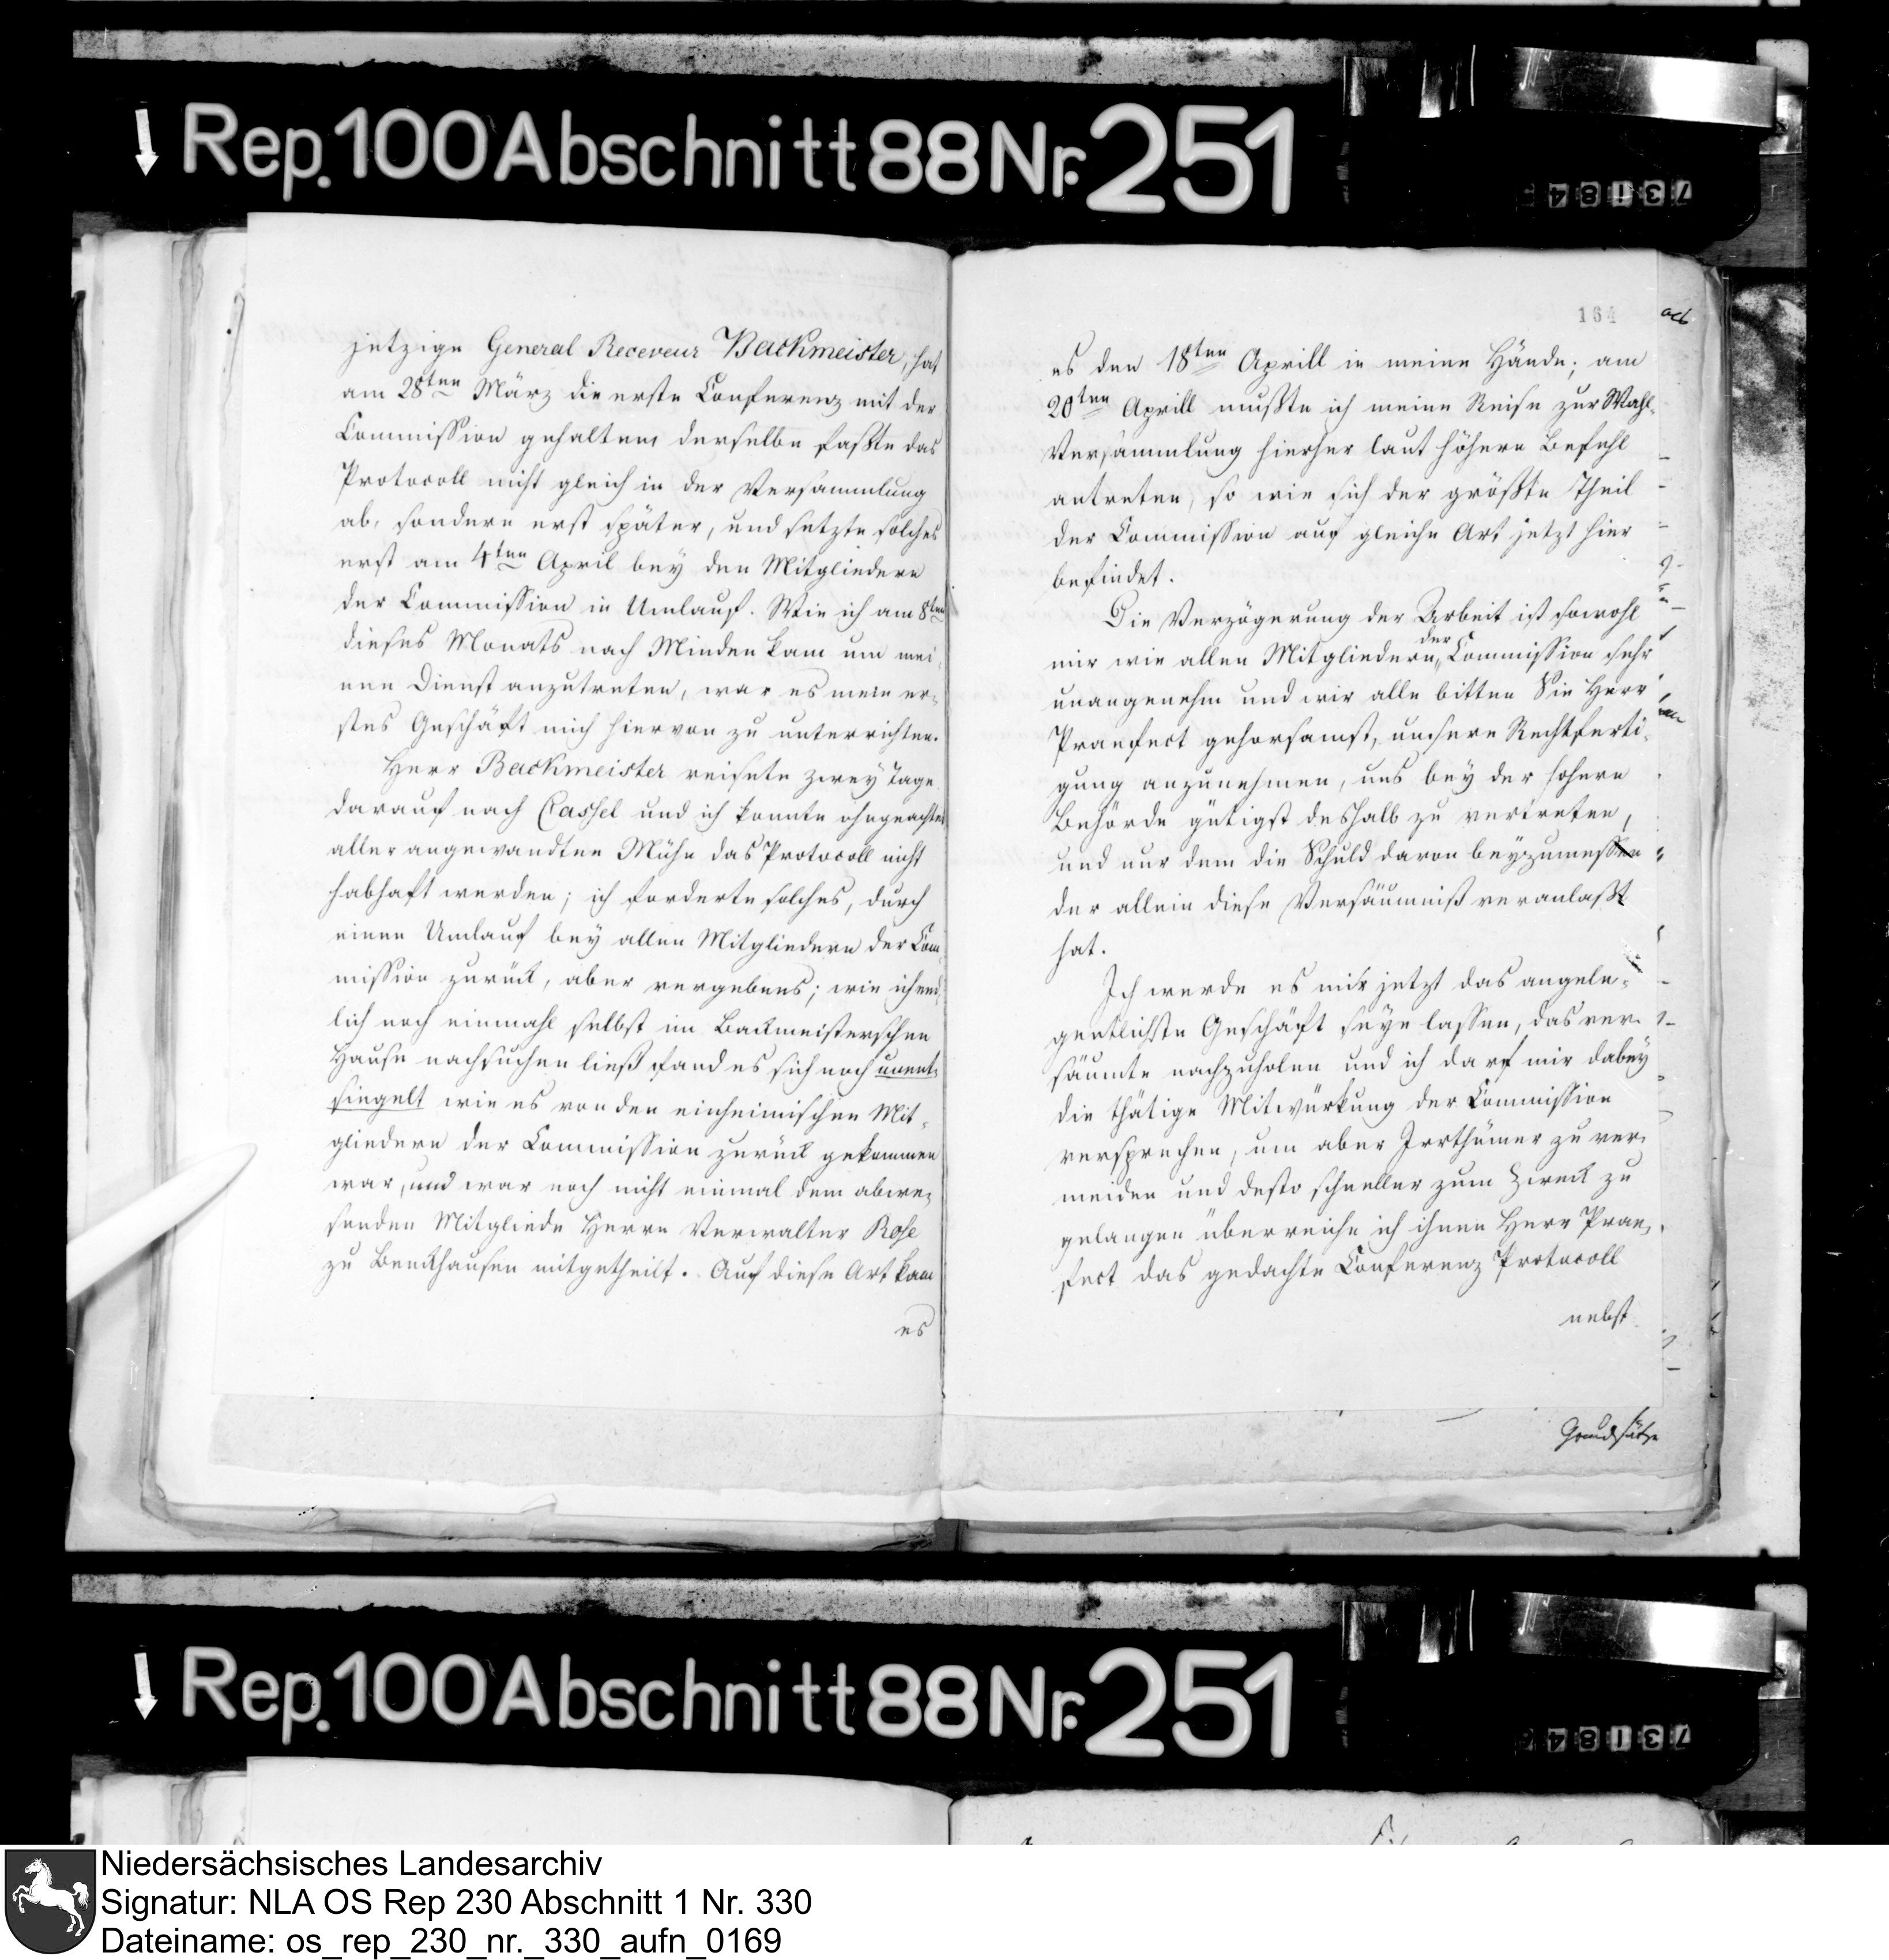 Rep. 100 Abschnitt 88 Nr. 251
73184
jetzige General Receveur Backmeister, hat
am 28ten März die erste Conferenz mit der
Commission gehalten, derselbe faßte das
Protocoll nicht gleich in der Versammlung
ab, sondern erst später, und setzte solches
erst am 4ten April bey den Mitgliedern
der Commission in Umlauf. Wie ich am 8ten
dieses Monats nach Minden kam um mei-
nen Dienst anzutreten, war es mein er-
stes Geschäft mich hiervon zu unterrichten.
Herr Backmeister reisete zwey Tage
darauf nach Cassel und ich konnte ohngeachtet
aller angewandten Mühe das Protocoll nicht
habhaft werden; ich forderte solches, durch
einen Umlauf bey allen Mitgliedern der Com-
mission zurück, aber vergebens; wie ich end-
lich noch einmahl selbst im Backmeisterschen
Hause nachsuchen ließ fand es sich noch unent-
siegelt wie es von den einheimischen Mit-
gliedern der Commission zurück gekommen
war, und war noch nicht einmal dem abwe-
senden Mitgliede Herrn Verwalter Rose
zu Benkhausen mitgetheilt. Auf diese Art kam
es
164
es den 18ten Aprill in meine Hände; am
20ten Aprill mußte ich meine Reise zur Wahl-
Versammlung hierher laut höhern Befehl
antreten, so wie sich der größte Theil
der Commission auf gleiche Art jetzt hier
befindet.
Die Verzögerung der Arbeit ist sowohl
mir wie allen Mitgliedern der Commission sehr
unangenehm und wir alle bitten Sie Herr
Praefect gehorsamst, unsere Rechtferti-
gung anzunehmen, uns bey der hohern
Behörde gütigst deshalb zu vertreten,
und nur dem die Schuld davon beyzumessen
der allein diese Versäumniß veranlaßt
hat.
Ich werde es mir jetzt das angele-
gentlichste Geschäft seyn lassen, das ver-
säumte nachzuholen und ich darf mir dabey
die thätige Mitwürkung der Commission
versprechen, um aber Irrthümer zu ver-
meiden und desto schneller zum Zweck zu
gelangen überreiche ich ihnen Herr Prae-
fect das gedachte Conferenz Protocoll
nebst
Grundsätze
Rep. 100 Abschnitt 88 Nr. 251
73184
Niedersächsisches Landesarchiv
Signatur: NLA OS Rep 230 Abschnitt 1 Nr. 330
Dateiname: os_rep_230_nr._330_aufn_0169